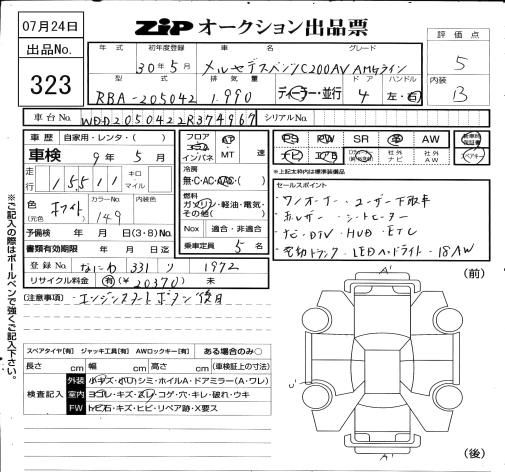 07月24日
ZIP オークション出品票
出品No.
323
評価点
5
内装
B
年式 初年度登録 車名 グレード
30年5月 メルセデスベンツC200AV AMGライン
型式 排気量 ドア ハンドル
RBA-205042 1.990 ディーラー・並行 4 左・右
車台No. WDD2050422R374967 シリアルNo.
車歴 自家用・レンタ・( )
車検 9年5月
走行 15511 キロ マイル
色 (元色) ホワイト カラーNo. 149 内装色
予備検 年 月 日(3・8)No.
書類有効期限 年 月 日迄
登録No. なにわ 331 り 1972
リサイクル料金 有(¥20370) 未
フロア コラム インパネ AP MT 速
冷房
無・C・AC・AAC・( )
燃料
ガソリン・軽油・電気・その他( )
Nox 適合・非適合
乗車定員 5名
PS PW SR 革 AW 新車時保証書
ナビ エアB 社外ナビ 社外AW スペアキー
※上記太枠内は標準装備品
セールスポイント
・ワンオーナー・ユーザー下取車
・赤レザー・シートヒーター
・ナビ・DTV・HUD・ETC
・電動トランク・LEDヘッドライト・18AW
(注意事項) ・エンジンスタートボタン後日
※ご記入の際はボールペンで強くご記入下さい。
スペアタイヤ[有] ジャッキ工具[有] AWロックキー[有] ある場合のみ○
長さ cm 幅 cm 高さ cm (車検証寸法)
検査記入 外装 小キズ・小凹・シミ・ホイルA・ドアミラー(A・ワレ)
室内 ヨゴレ・キズ・スレ・コゲ・穴・キレ・破れ・ウキ
FW トビ石・キズ・ヒビ・リペア跡・X要ス
(前)
A'
A'
(後)